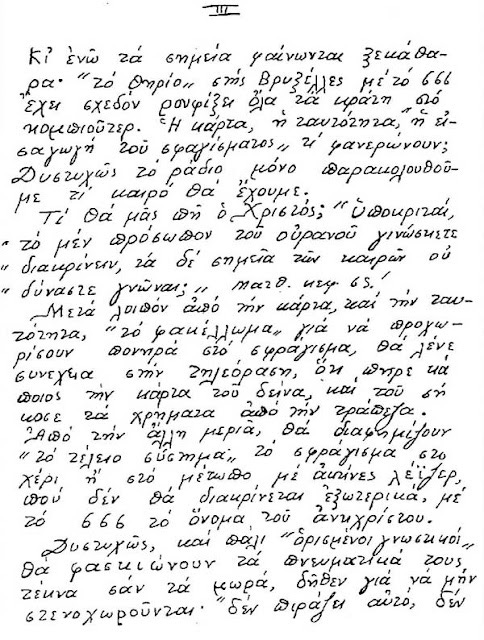 III
Κι' ἐνῶ τά σημεία φαίνωνται ξεκάθα-
ρα· "τό θηρίο„ στής Βρυξέλλες μέ τό 666
ἔχει σχεδόν ρουφίξει ὅλα τά κράτη στό
κομπιοῦτερ. Ἡ κάρτα, ἡ ταυτότητα, "ἡ εἰ-
σαγωγή τοῦ σφαγίσματος„ τί φανερώνουν;
Δυστυχῶς τό ράδιο μόνο παρακολουθοῦ-
με τί καιρό θά ἔχουμε.
Τί θά μᾶς πῆ ὁ Χριστός; "Ὑποκριταί,
"τό μέν πρόσωπον τοῦ οὐρανοῦ γινώσκετε
„διακρίνειν, τά δέ σημεῖα τῶν καιρῶν οὐ
„δύναστε γνῶναι;„ ματθ. κεφ ις!
Μετά λοιπόν ἀπό τήν κάρτα, καί τήν ταυ-
τότητα, "τό φακέλλωμα„ γιά νά προχω-
ρίσουν πονηρά στό σφράγισμα, θά λένε
συνεχεια στήν τηλεόραση, ὅτι πῆρε κά
ποιος τήν κάρτα τοῦ δείνα, καί τοῦ σή
κοσε τά χρήματα ἀπό τήν τράπεζα.
Ἀπό τήν ἄλλη μεριά, θά διαφημίζουν
"τό τέλειο σύστημα„ τό σφράγισμα στό
χέρι ἤ στό μέτωπο μέ ἀκτίνες λέϊζερ,
πού δέν θά διακρίνεται ἐξωτερικά, μέ
τό 666 τό ὄνομα τοῦ ἀντιχρίστου.
Δυστυχῶς, καί πάλι "ὁρισμένοι γνωστικοί„
θά φασκιώνουν τά πνευματικά τους
τέκνα σάν τά μωρά, δῆθεν γιά νά μήν
στενοχωροῦνται· "δέν πιράζει αὐτό, δέν